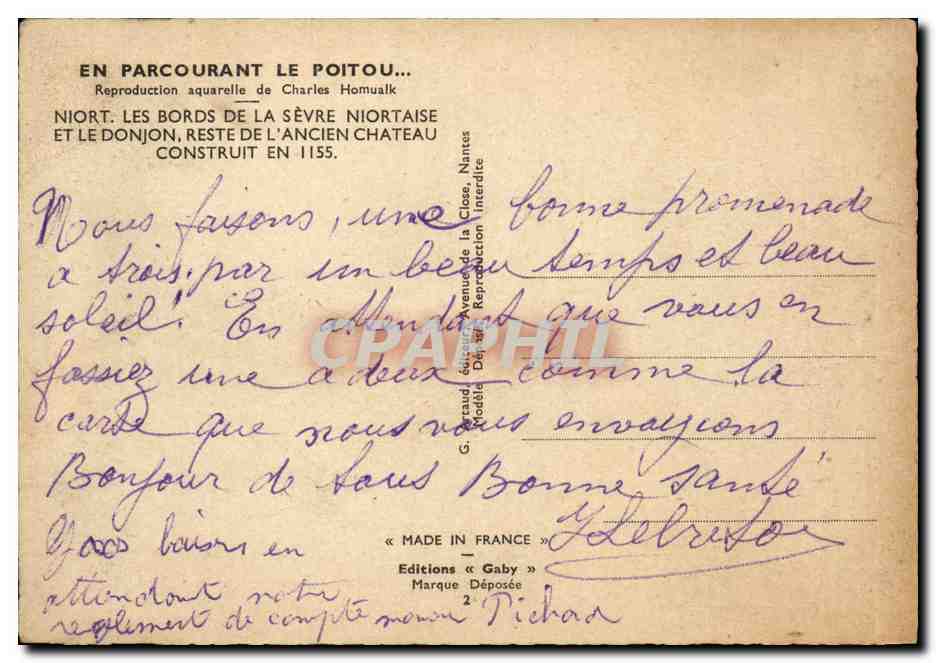 EN PARCOURANT LE POITOU...
Reproduction aquarelle de Charles Homualk
NIORT. LES BORDS DE LA SÈVRE NIORTAISE
ET LE DONJON, RESTE DE L'ANCIEN CHATEAU
CONSTRUIT EN 1155.
Nous faisons, une bonne promenade
a trois par un beau temps et beau
soleil. En attendant que vous en
fassiez une a deux comme la
carte que nous vous envoyions
Bonjour de tous Bonne santé
baisers en
attendant notre
reglement de compte Pichard
G. Artaud, éditeur, Avenue de la Close, Nantes
Modèle Déposé Reproduction interdite
« MADE IN FRANCE »
Editions « Gaby »
Marque Déposée
2
CPAPHIL